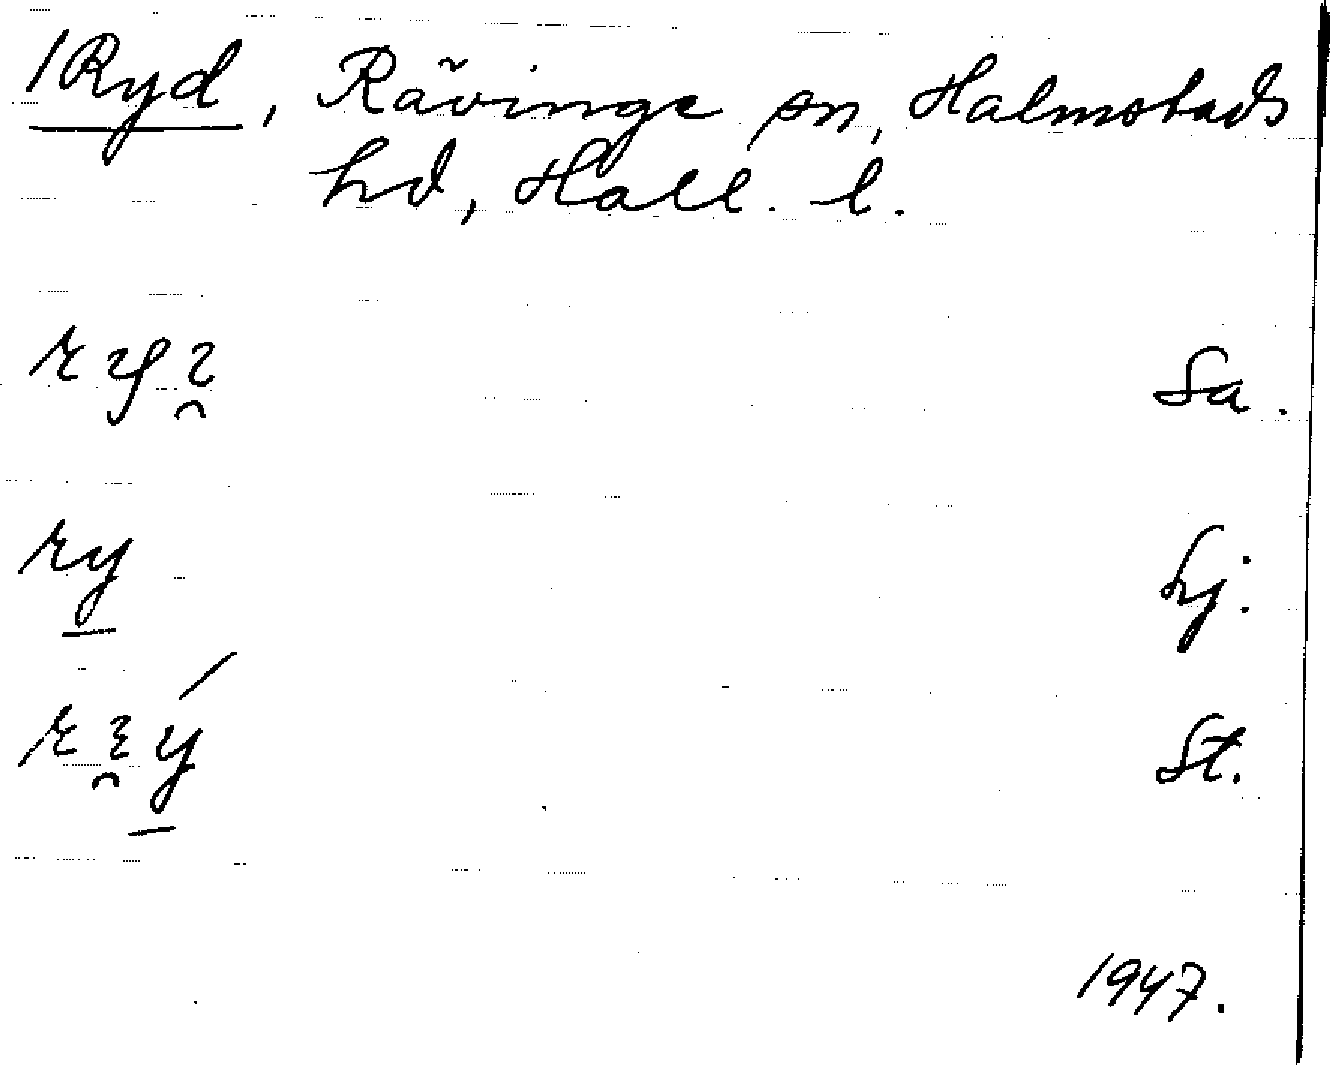 /Ryd, Rävinge sn, Halmstads
hd, Hall. l.
Sa.
ry
hj:
St.
1947.